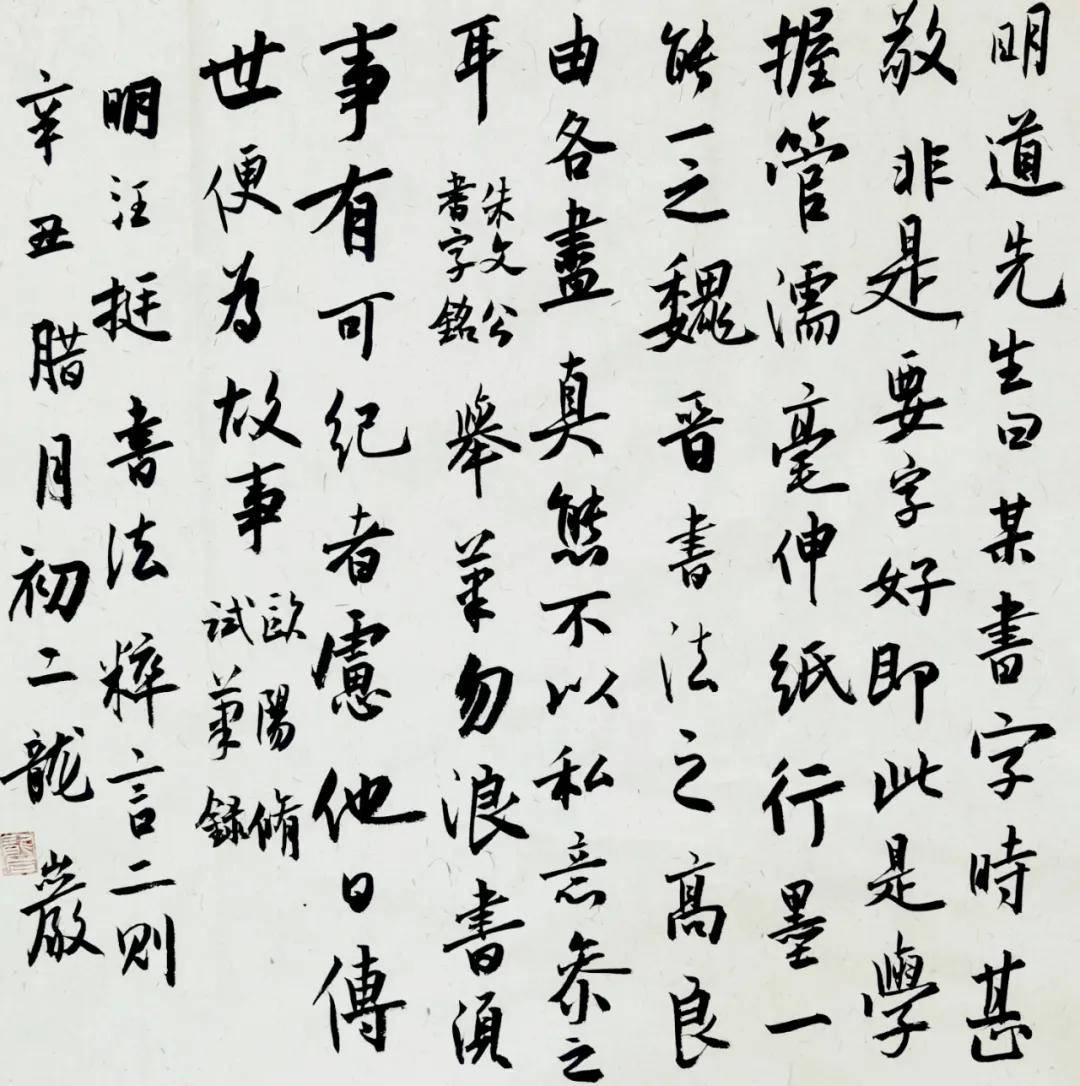 明道先生曰某書字時甚
敬非是要字好即此是學
握管濡毫伸紙行墨一
能一之魏晉書法之高良
由各盡真態不以私意参之
耳
朱文公
書字銘
舉筆勿浪書須
事有可紀者慮他日傳
世便為故事
歐陽脩
試筆録
明汪挺書法粹言二則
辛丑腊月初二龍巖